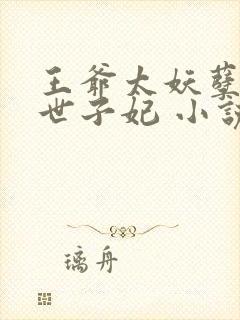 王爷太妖孽
世子妃 小说
璃舟